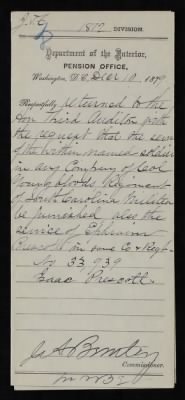 1812 DIVISION
Department of the Interior,
PENSION OFFICE,
Washington, D.C. Dec 10, 1879
Respectfully returned to the
Hon Third Auditor with
the request that the serv
of the within named soldier
in any Company of Col
Youngbloods Regiment
of South Carolina Militia
be furnished also the
service of Ephraim
Prescott in same Co & Regt
No 33,939
Isaac Prescott
J. A. Bentley
Commissioner.